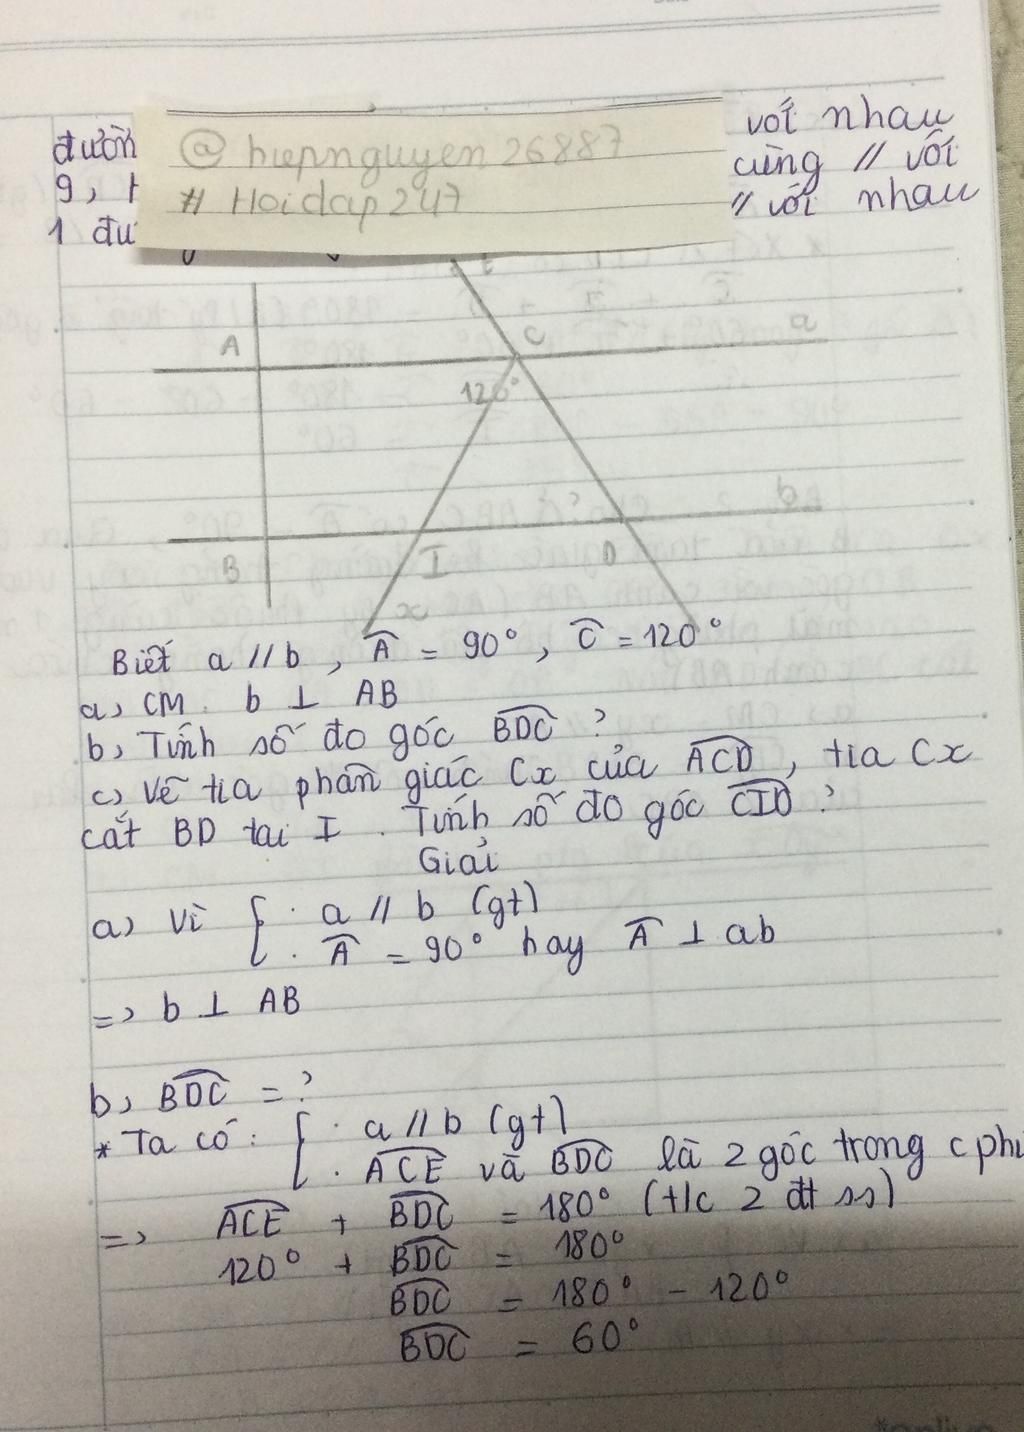 đườn
@ hiepnguyen26887
với nhau
9,
# Hoidap247
cùng // với
1 đư
// với nhau
A
C
a
120°
?
b
B
I
D
x
Biết a // b , A = 90° , C = 120°
a, CM. b ⊥ AB
b, Tính số đo góc BDC ?
c, Vẽ tia phân giác Cx của ACD, tia Cx
cắt BD tại I . Tính số đo góc CID ?
Giải
a, Vì { . a // b (gt)
. A = 90° hay A ⊥ ab
=> b ⊥ AB
b, BDC = ?
* Ta có : { . a // b (gt)
. ACE và BDC là 2 góc trong c phí
=> ACE + BDC = 180° (t/c 2 đt ss)
120° + BDC = 180°
BDC = 180° - 120°
BDC = 60°